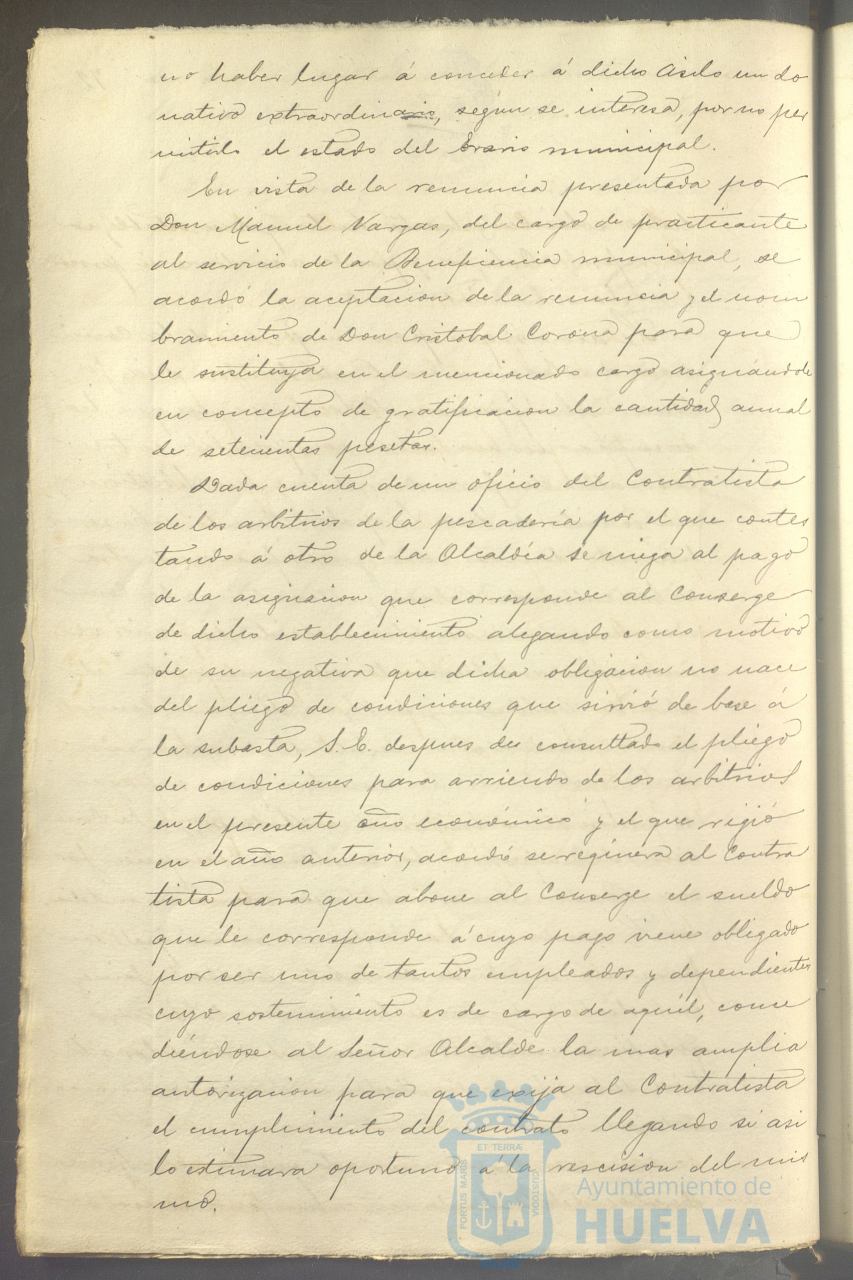 no haber lugar á conceder á dicho Asilo un do
nativo extraordinario, según se interesa, por no per
mitirlo el estado del Erario municipal.
En vista de la renuncia presentada por
Don Manuel Vargas, del cargo de practicante
al servicio de la Beneficencia municipal, se
acordó la aceptacion de la renuncia y el nom
bramiento de Don Cristobal Corona para que
le sustituya en el mencionado cargo asignándole
en concepto de gratificacion la cantidad anual
de setecientas pesetas.
Dada cuenta de un oficio del Contratista
de los arbitrios de la pescadería por el que contes
tando á otro de la Alcaldía se niega al pago
de la asignacion que corresponde al Conserge
de dicho establecimiento alegando como motivo
de su negativa que dicha obligacion no nace
del pliego de condiciones que sirvió de base á
la subasta, S. E. despues de consultado el pliego
de condiciones para arriendo de los arbitrios
en el presente año económico y el que rigió
en el año anterior, acordó se requiera al Contra
tista para que abone al Conserge el sueldo
que le corresponde á cuyo pago viene obligado
por ser uno de tantos empleados y dependientes
cuyo sostenimiento es de cargo de aquél, conce
diéndose al Señor Alcalde la mas amplia
autorizacion para que exija al Contratista
el cumplimiento del contrato llegando si asi
lo estimara oportuno á la rescision del mis
mo.
PORTUS MARIS
ET TERRÆ
CUSTODIA
Ayuntamiento de
HUELVA